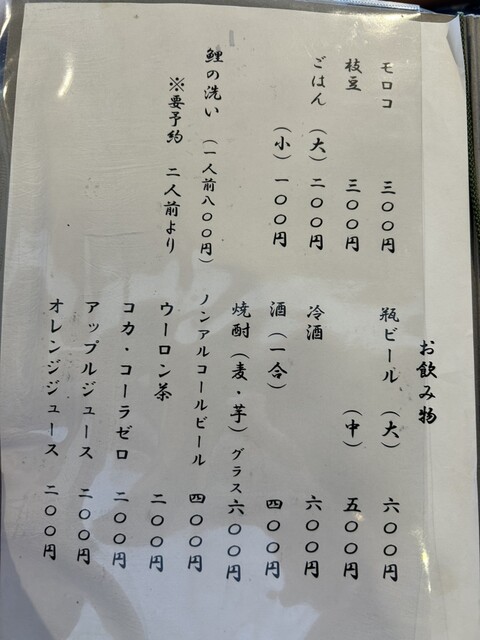 モロコ 三〇〇円
枝豆 三〇〇円
ごはん (大) 二〇〇円
(小) 一〇〇円
鯉の洗い (一人前八〇〇円)
※要予約 二人前より
お飲み物
瓶ビール (大) 六〇〇円
(中) 五〇〇円
冷酒 六〇〇円
酒(一合) 四〇〇円
焼酎(麦・芋)グラス 六〇〇円
ノンアルコールビール 四〇〇円
ウーロン茶 二〇〇円
コカ・コーラゼロ 二〇〇円
アップルジュース 二〇〇円
オレンジジュース 二〇〇円